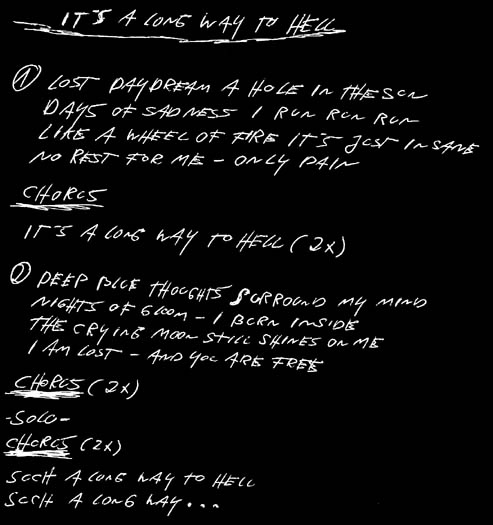 IT'S A LONG WAY TO HELL
① LOST DAYDREAM A HOLE IN THE SUN
DAYS OF SADNESS I RUN RUN RUN
LIKE A WHEEL OF FIRE IT'S JUST INSANE
NO REST FOR ME - ONLY PAIN
CHORUS
IT'S A LONG WAY TO HELL (2x)
② DEEP BLUE THOUGHTS SURROUND MY MIND
NIGHTS OF GLOOM - I BURN INSIDE
THE CRYING MOON STILL SHINES ON ME
I AM LOST - AND YOU ARE FREE
CHORUS (2x)
-SOLO-
CHORUS (2x)
SUCH A LONG WAY TO HELL
SUCH A LONG WAY...